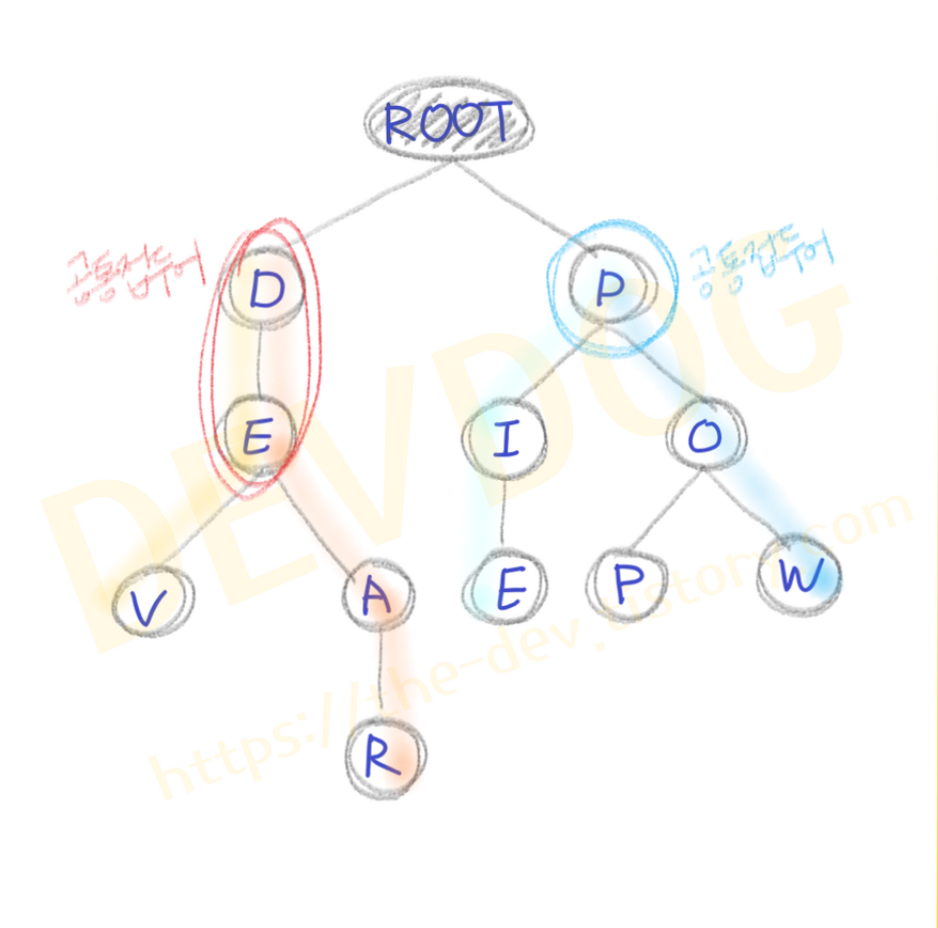 ROOT
공통접두어
D
P
공통접두어
E
I
O
V
A
E
P
W
R
DEVDOG
https://the-dev.tistory.com